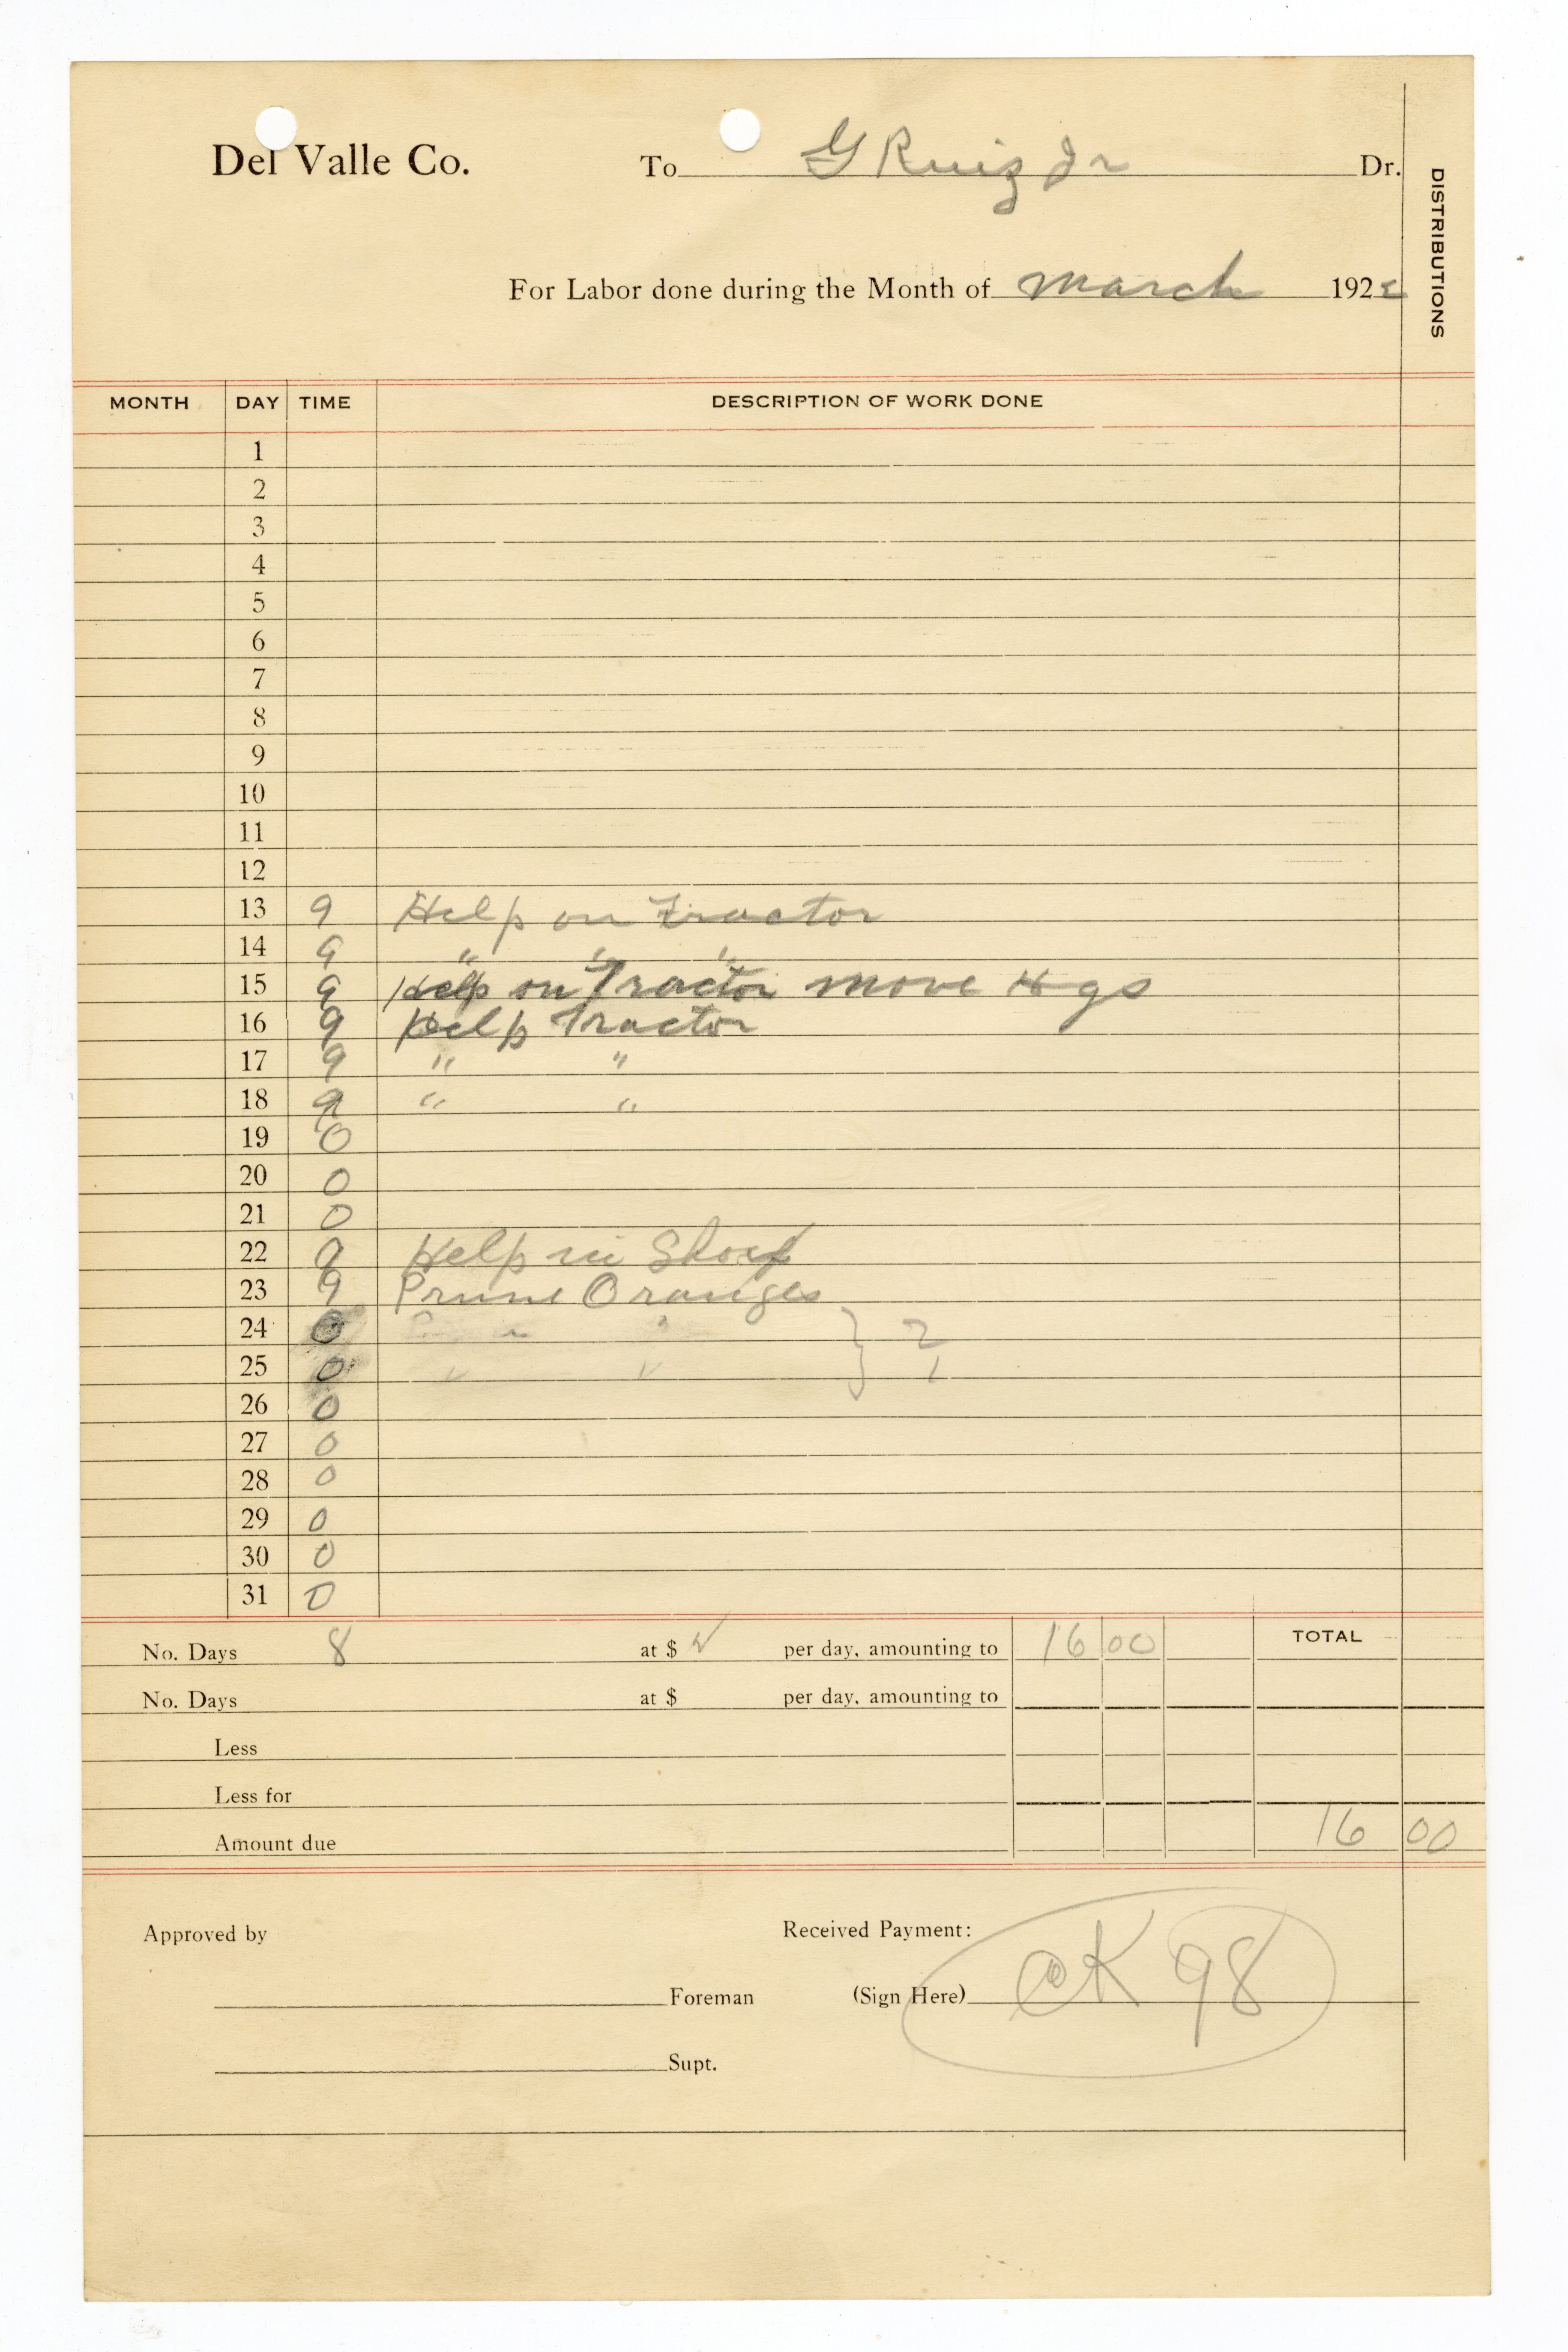 Del Valle Co. To G Ruiz Jr Dr.
DISTRIBUTIONS
For Labor done during the Month of March 192
MONTH DAY TIME DESCRIPTION OF WORK DONE
1
2
3
4
5
6
7
8
9
10
11
12
13 9 Help on Tractor
14 9 " " "
15 9 Help on Tractor move Hogs
16 9 Help Tractor
17 9 " "
18 9 " "
19 0
20 0
21 0
22 9 Help in Shop
23 9 Prune Oranges
24 0
25 0 " "
26 0
27 0
28 0
29 0
30 0
31 0
No. Days 8 at $ 2 per day, amounting to 16 00 TOTAL
No. Days at $ per day, amounting to
Less
Less for
Amount due 16 00
Approved by Received Payment:
Foreman (Sign Here) CK 98
Supt.